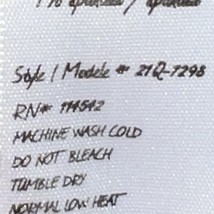 Style / Modèle # 21Q-7298
RN# 114542
MACHINE WASH COLD
DO NOT BLEACH
TUMBLE DRY
NORMAL LOW HEAT